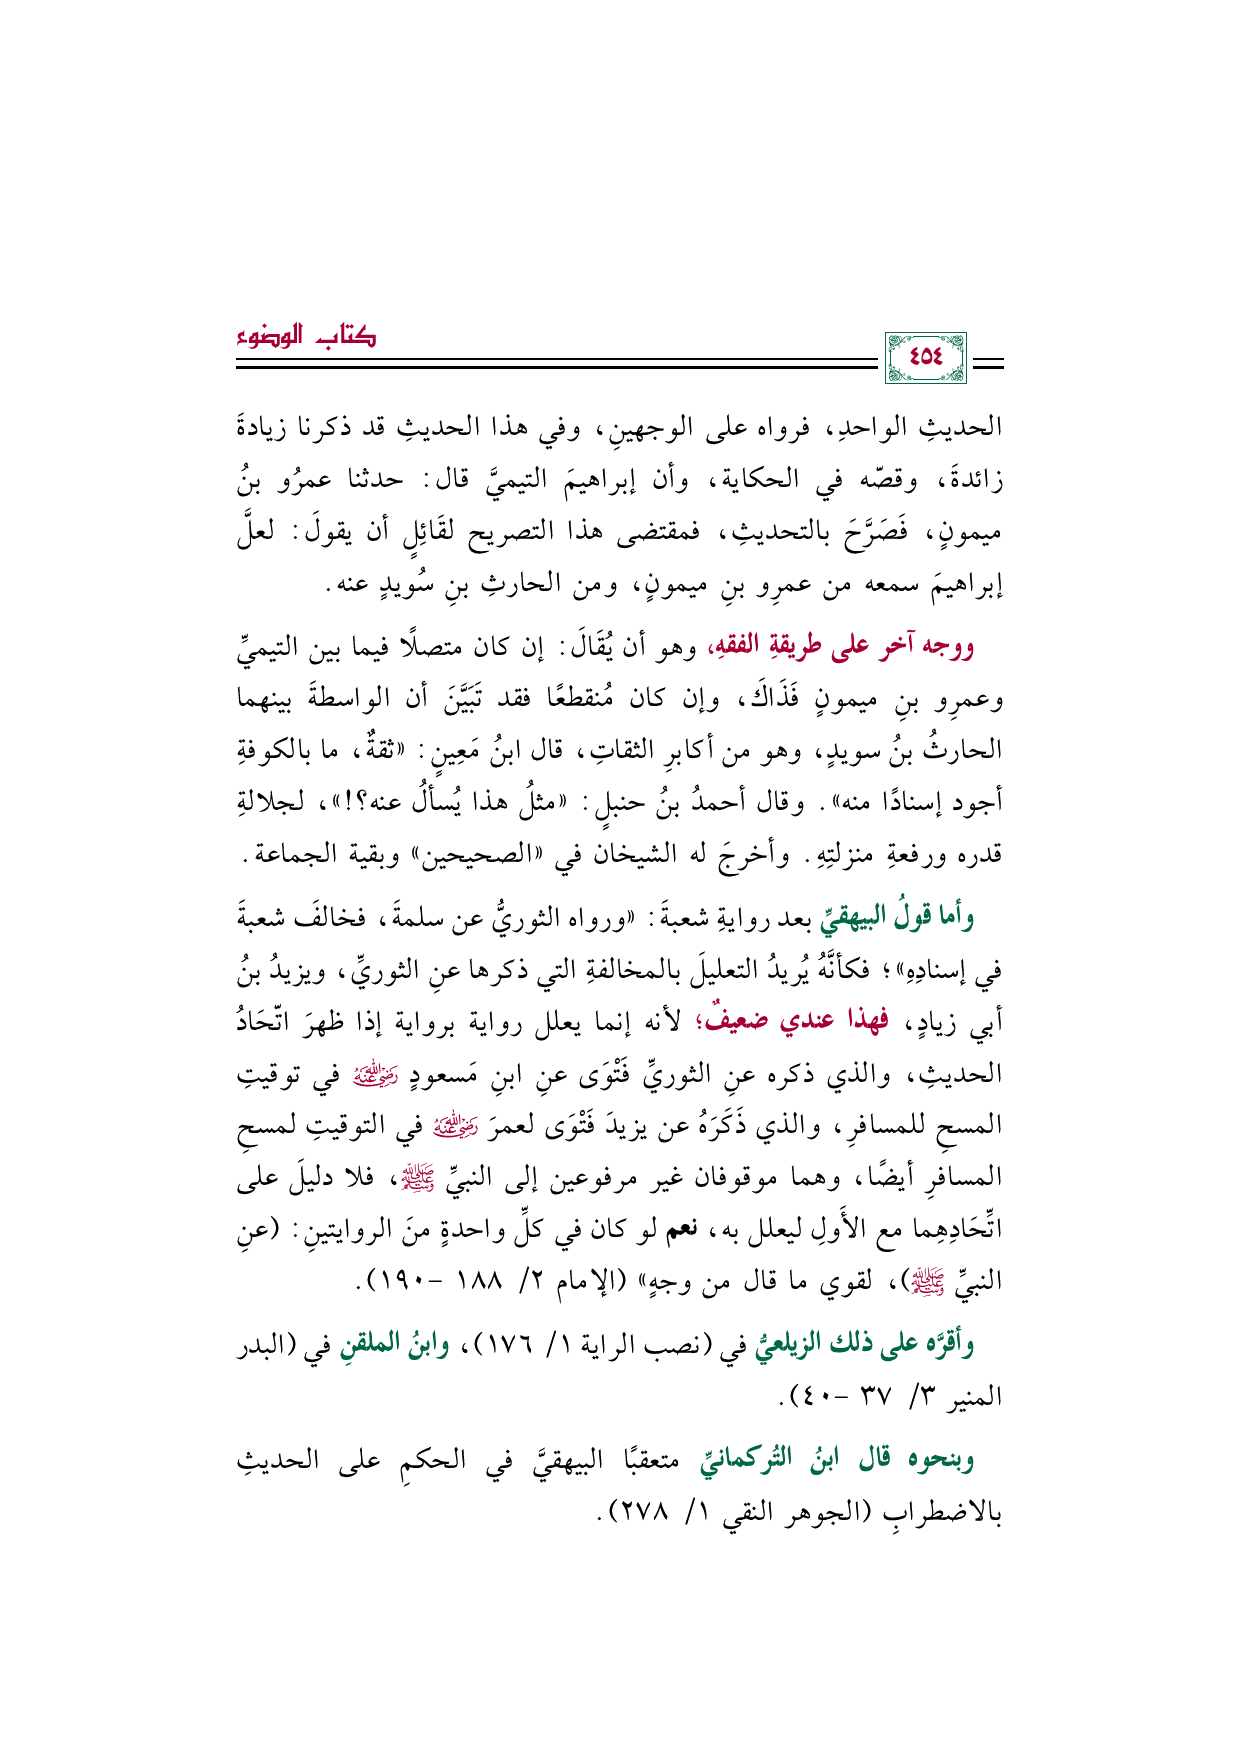 كتاب الوضوء
٤٥٤
الحديثِ الواحدِ، فرواه على الوجهينِ، وفي هذا الحديثِ قد ذكرنا زيادةَ
زائدةَ، وقصّه في الحكاية، وأن إبراهيمَ التيميَّ قال: حدثنا عمرُو بنُ
ميمونٍ، فَصَرَّحَ بالتحديثِ، فمقتضى هذا التصريح لقَائِلٍ أن يقولَ: لعلَّ
إبراهيمَ سمعه من عمرِو بنِ ميمونٍ، ومن الحارثِ بنِ سُويدٍ عنه.
ووجه آخر على طريقةِ الفقهِ، وهو أن يُقَالَ: إن كان متصلًا فيما بين التيميِّ
وعمرِو بنِ ميمونٍ فَذَاكَ، وإن كان مُنقطعًا فقد تَبَيَّنَ أن الواسطةَ بينهما
الحارثُ بنُ سويدٍ، وهو من أكابرِ الثقاتِ، قال ابنُ مَعِينٍ: «ثقةٌ، ما بالكوفةِ
أجود إسنادًا منه». وقال أحمدُ بنُ حنبلٍ: «مثلُ هذا يُسألُ عنه؟!»، لجلالةِ
قدره ورفعةِ منزلتِهِ. وأخرجَ له الشيخان في «الصحيحين» وبقية الجماعة.
وأما قولُ البيهقيِّ بعد روايةِ شعبةَ: «ورواه الثوريُّ عن سلمةَ، فخالفَ شعبةَ
في إسنادِهِ»؛ فكأنَّهُ يُريدُ التعليلَ بالمخالفةِ التي ذكرها عنِ الثوريِّ، ويزيدُ بنُ
أبي زيادٍ، فهذا عندي ضعيفٌ؛ لأنه إنما يعلل رواية برواية إذا ظهرَ اتّحَادُ
الحديثِ، والذي ذكره عنِ الثوريِّ فَتْوَى عنِ ابنِ مَسعودٍ رضي الله عنه في توقيتِ
المسحِ للمسافرِ، والذي ذَكَرَهُ عن يزيدَ فَتْوَى لعمرَ رضي الله عنه في التوقيتِ لمسحِ
المسافرِ أيضًا، وهما موقوفان غير مرفوعين إلى النبيِّ ﷺ، فلا دليلَ على
اتِّحَادِهِما مع الأَولِ ليعلل به، نعم لو كان في كلِّ واحدةٍ منَ الروايتينِ: (عنِ
النبيِّ ﷺ)، لقوي ما قال من وجهٍ» (الإمام ٢/ ١٨٨ -١٩٠).
وأقرَّه على ذلك الزيلعيُّ في (نصب الراية ١/ ١٧٦)، وابنُ الملقنِ في (البدر
المنير ٣/ ٣٧ -٤٠).
وبنحوه قال ابنُ التُركمانيِّ متعقبًا البيهقيَّ في الحكمِ على الحديثِ
بالاضطرابِ (الجوهر النقي ١/ ٢٧٨).